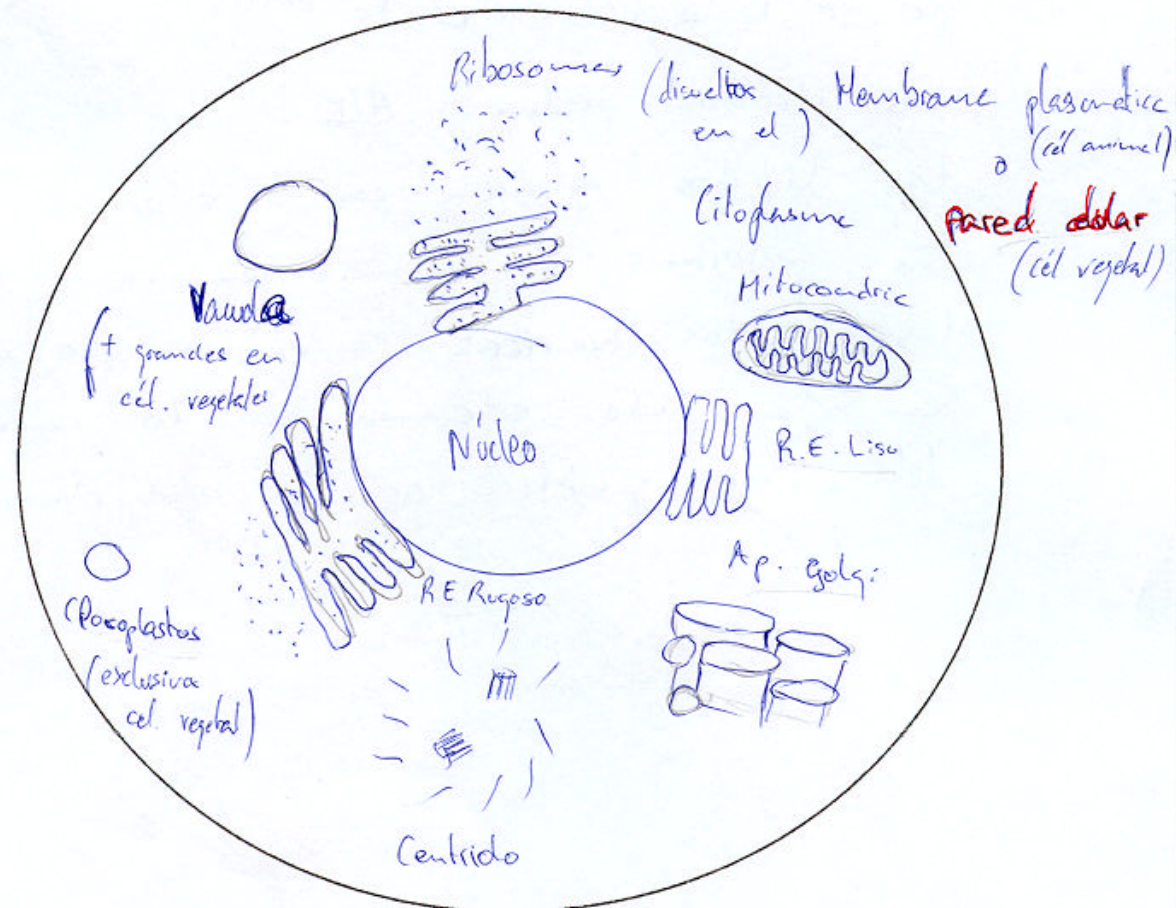 Ribosomas (disueltos
en el)
Citoplasma
Membrana plasmática
o (cél animal)
Pared celular
(cél vegetal)
Mitocondria
Vacuola
(+ grandes en
cél. vegetales)
Núcleo
R.E. Liso
Ap. Golgi
R.E Rugoso
Cloroplastos
(exclusiva
cel. vegetal)
Centriolo